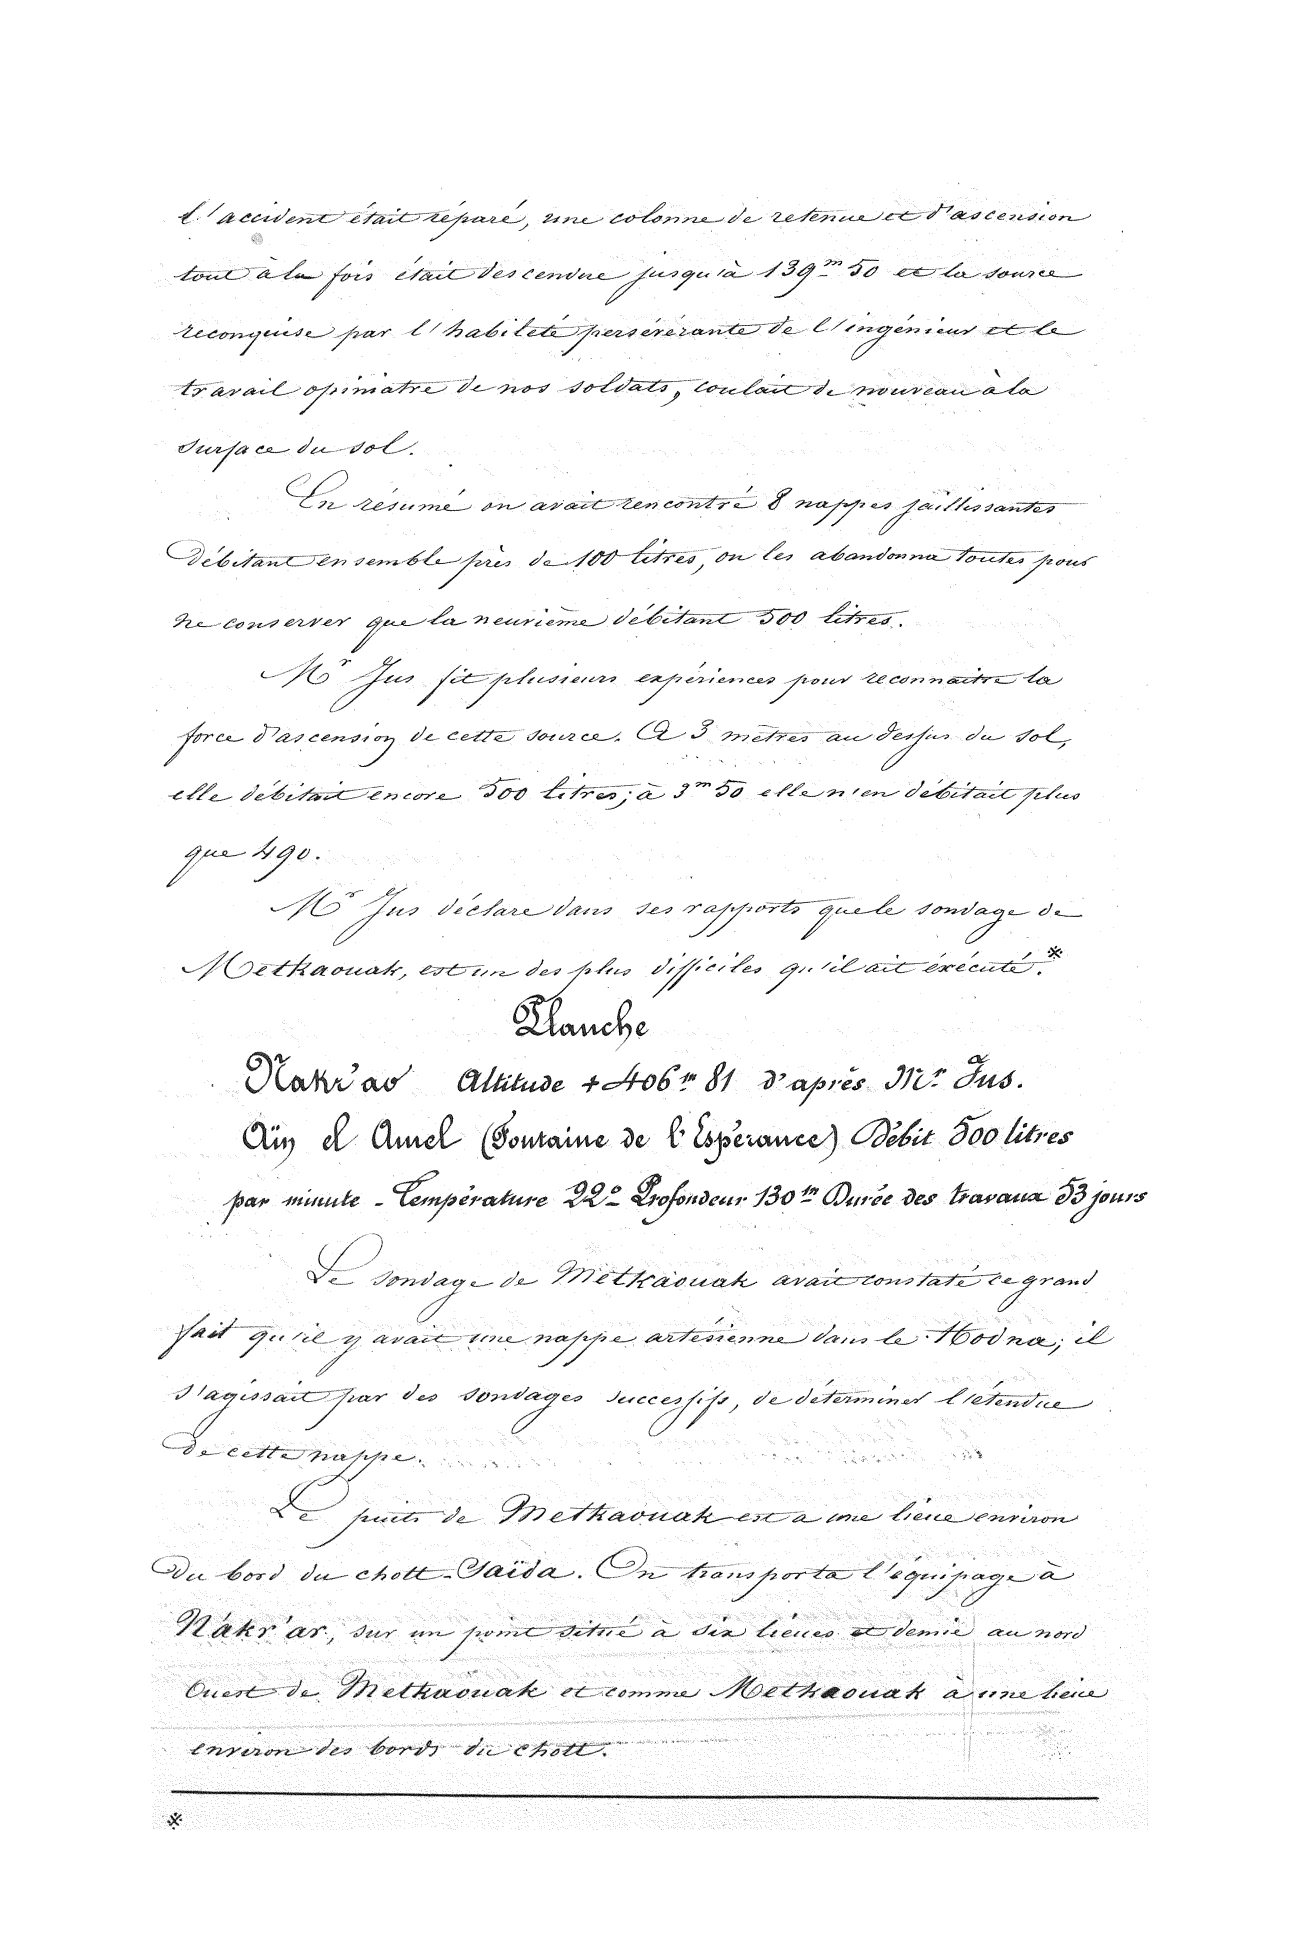 l'accident était réparé, une colonne de retenue et d'ascension
tout à la fois était descendue jusqu'à 139m 50 et la source
reconquise par l'habileté persévérante de l'ingénieur et le
travail opiniatre de nos soldats, coulait de nouveau à la
surface du sol.
En résumé on avait rencontré 8 nappes jaillissantes
débitant ensemble près de 100 litres, on les abandonna toutes pour
ne conserver que la neuvième débitant 500 litres.
Mr Jus fit plusieurs expériences pour reconnaitre la
force d'ascension de cette source. A 3 mètres au dessus du sol,
elle débitait encore 500 litres; à 3m 50 elle n'en débitait plus
que 490.
Mr Jus déclare dans ses rapports que le sondage de
Metkaouak, est un des plus difficiles qu'il ait éxécuté.*
Planche
Nakr'ar Altitude + 406m 81 d'après Mr Jus.
Aïn el Amel (Fontaine de l'Espérance) Débit 500 litres
par minute - Température 22° Profondeur 130m Durée des travaux 53 jours
Le sondage de Metkaouak avait constaté ce grand
fait qu'il y avait une nappe artésienne dans le Hodna; il
s'agissait par des sondages successifs, de déterminer l'étendue
de cette nappe.
Le puits de Metkaouak est a une lieue environ
du bord du chott-Saïda. On transporta l'équipage à
Nakr'ar, sur un point situé à six lieues et demie au nord
Ouest de Metkaouak et comme Metkaouak à une lieue
environ des bords du chott.
*